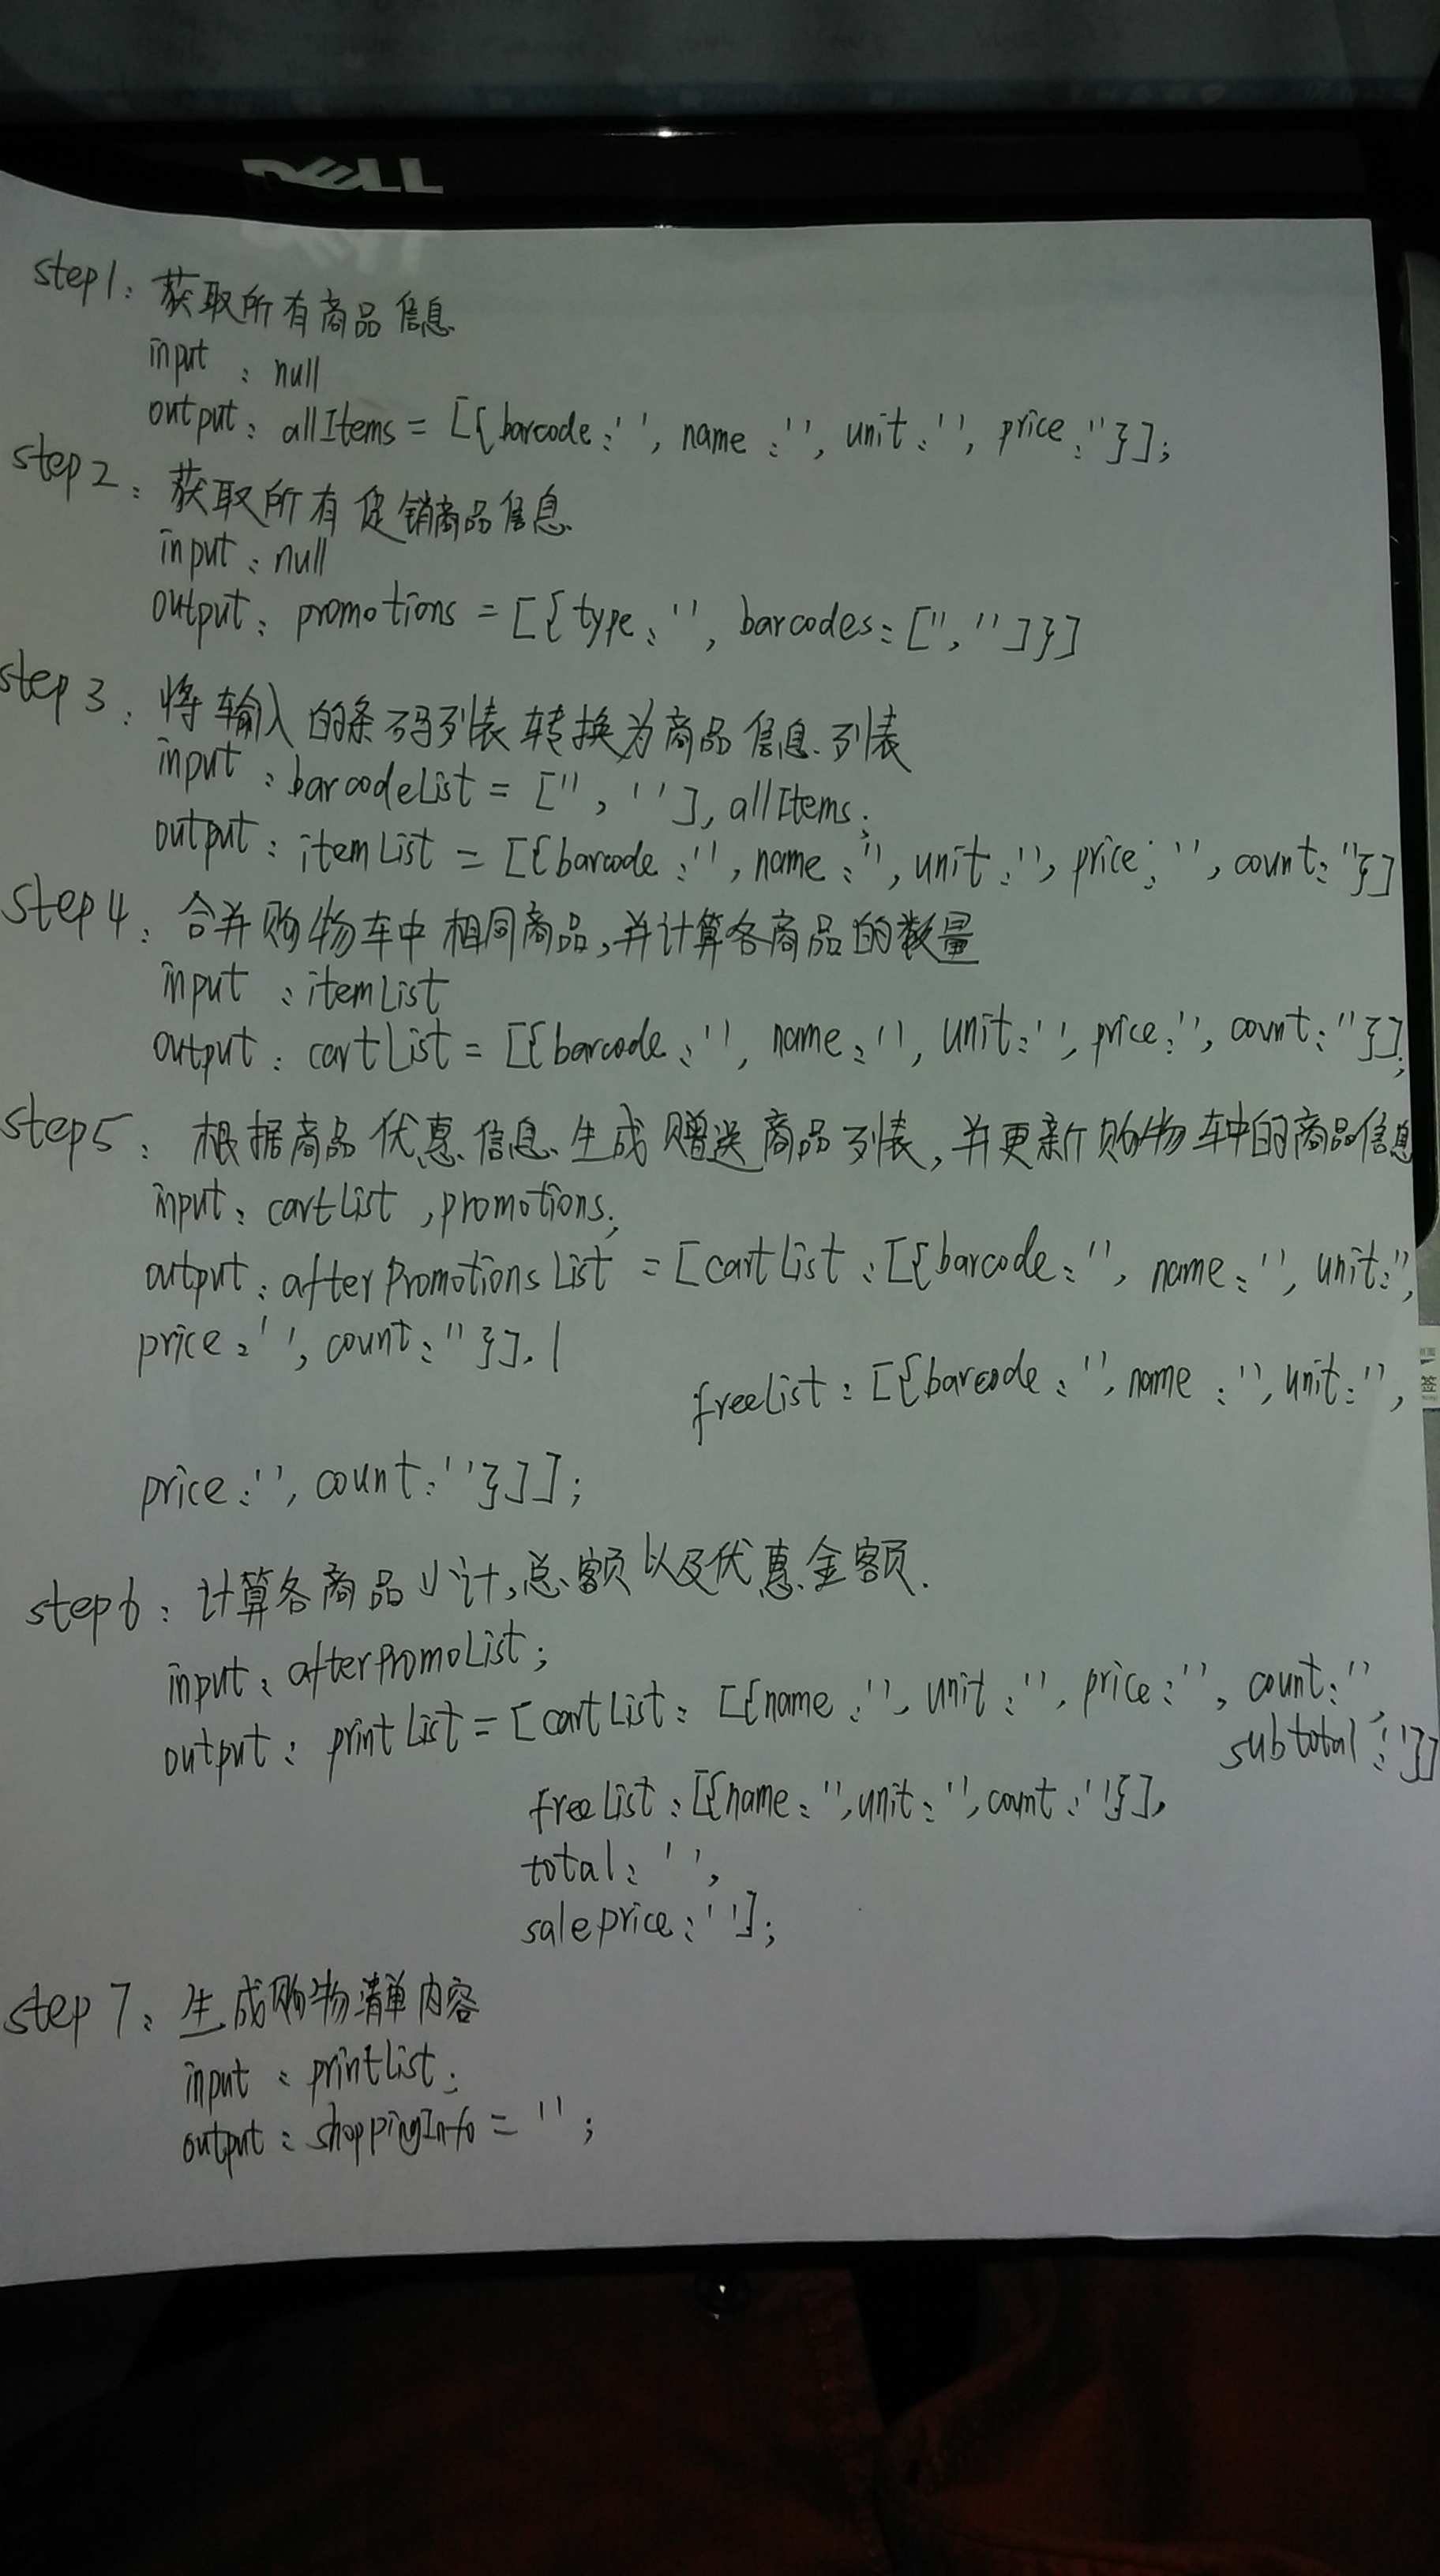 DELL
step1: 获取所有商品信息
input : null
output: allItems = [{barcode:'', name:'', unit:'', price:''}];
step2: 获取所有促销商品信息
input: null
output: promotions = [{type:'', barcodes:['','']}]
step3: 将输入的条码列表转换为商品信息列表
input : barcodeList = ['',''], allItems;
output: itemList = [{barcode:'', name:'', unit:'', price:'', count:''}]
step4: 合并购物车中相同商品,并计算各商品的数量
input : itemList
output: cartList = [{barcode:'', name:'', unit:'', price:'', count:''}];
step5: 根据商品优惠信息生成赠送商品列表,并更新购物车中的商品信息
input: cartList, promotions;
output: afterPromotionsList = [cartList:[{barcode:'', name:'', unit:'',
price:'', count:''}],
freeList:[{barcode:'', name:'', unit:'',
price:'', count:''}]];
step6: 计算各商品小计,总额以及优惠金额.
input: afterPromoList;
output: printList = [cartList: [{name:'', unit:'', price:'', count:'',
subtotal:''}]
freeList:[{name:'', unit:'', count:''}],
total:'',
saleprice:''];
step7: 生成购物清单内容
input : printList;
output: shoppingInfo = '';
签